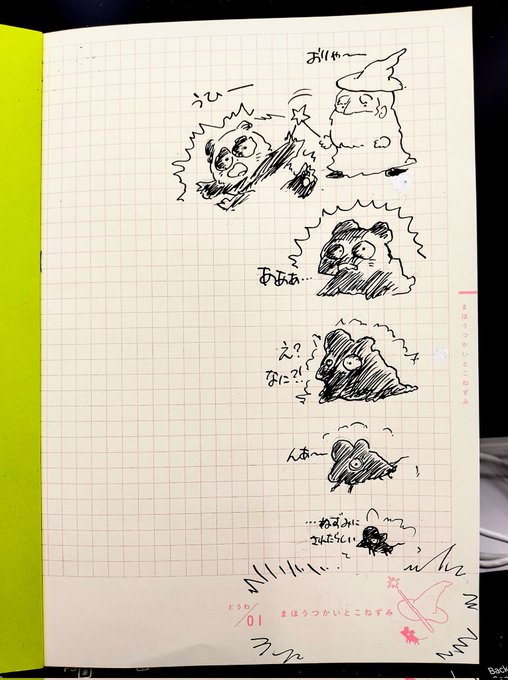 おりゃ〜
うひー
あああ…
え?
なに?!
んあ〜
…ねずみに
されたらしい
まほうつかいとこねずみ
どうわ
01
まほうつかいとこねずみ
Back